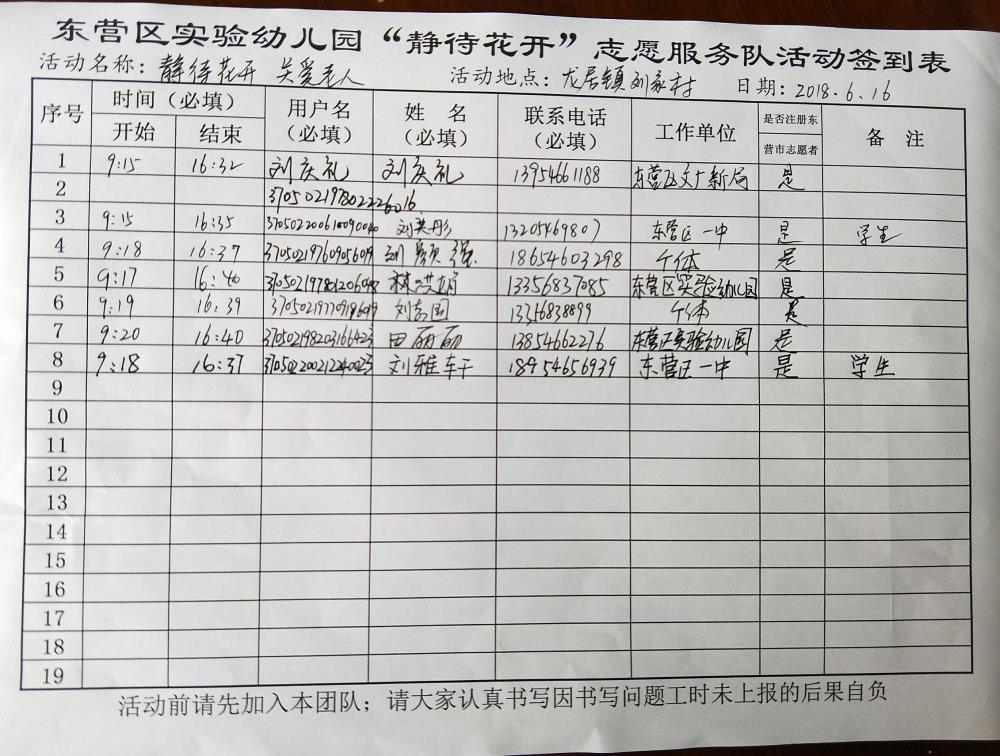 东营区实验幼儿园“静待花开”志愿服务队活动签到表
活动名称：静待花开 关爱老人 活动地点：龙居镇刘家村 日期：2018.6.16
序号 时间（必填） 用户名（必填） 姓 名（必填） 联系电话（必填） 工作单位 是否注册东营市志愿者 备 注
开始 结束
1 9:15 16:32 刘庆礼 刘庆礼 13954661188 东营区文广新局 是
2
3 9:15 16:35 13205469807 东营区一中 是 学生
4 9:18 16:37 18654603298 个体 是
5 9:17 16:40 13356837085 东营区实验幼儿园 是
6 9:19 16:39 刘志国 个体 是
7 9:20 16:40 田丽丽 13854662276 东营区实验幼儿园 是
8 9:18 16:37 刘雅轩 18954656939 东营区一中 是 学生
9
10
11
12
13
14
15
16
17
18
19
活动前请先加入本团队；请大家认真书写因书写问题工时未上报的后果自负